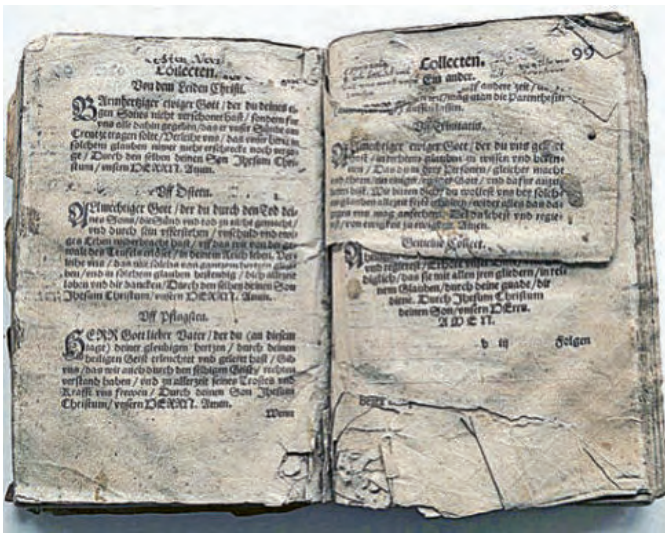 Collecten.
Von dem Leiden Christi.
BArmhertziger ewiger Gott / der du deines ei-
gen Sones nicht verschonet hast / sondern für
vns alle dahin gegeben / das er vnser Sünde am
Creutze tragen solte / Verleihe vns / das vnser hertz in
solchem glauben nimer mehr erschrecke noch verza-
ge / Durch den selben deinen Son Jhesum Chri-
stum / vnsern HERRN. Amen.
Vff Ostern.
ALlmechtiger Gott / der du durch den Tod dei-
nes Sons / die Sünd vnd tod zu nicht gemacht /
vnd durch sein vfferstehen / vnschuld vnd ewi-
ges Leben widerbracht hast / vff das wir von der ge-
walt des Teufels erlöset / in deinem Reich leben. Ver-
leihe vns / das wir solchs von gantzem hertzen glau-
ben / vnd in solchem glauben bestendig / dich allezeit
loben vnd dir dancken / Durch den selben deinen Son
Jhesum Christum / vnsern HERRN. Amen.
Vff Pfingsten.
HERR Gott lieber Vater / der du (an diesem
tage) deiner gleubigen hertzen / durch deinen
heiligen Geist erleuchtet vnd geleret hast / Gib
vns / das wir auch durch den selbigen Geist / rechten
verstand haben / vnd zu allerzeit seines Trostes vnd
Krafft vns frewen / Durch deinen Son Jhesum
Christum / vnsern HERRN. Amen.
Wenn
Collecten. 99
Ein ander.
vff andere zeit
man die Parenthesin
aussen lassen.
Vff Trinitatis.
ALmechtiger ewiger Gott / der du vns geleret
hast / in rechtem glauben zu wissen vnd beken-
nen / Das du in drey Personen / gleicher macht
vnd ehren / ein einiger ewiger Gott / vnd dafur anzu-
beten bist. Wir bitten dich / du wollest vns bey solchem
glauben allezeit fest erhalten / wider alles das da-
gegen vns mag anfechten. Der du lebest vnd regie-
rest / von ewigkeit zu ewigkeit. Amen.
Gemeine Collect.
vnd regierest /
diglich / das sie mit allen jren gliedern / in reii
nem Glauben / durch deine gnade / dir
diene. Durch Jhesum Christum
deinen Son / vnsern HErrn.
AMEN.
v iij Folgen